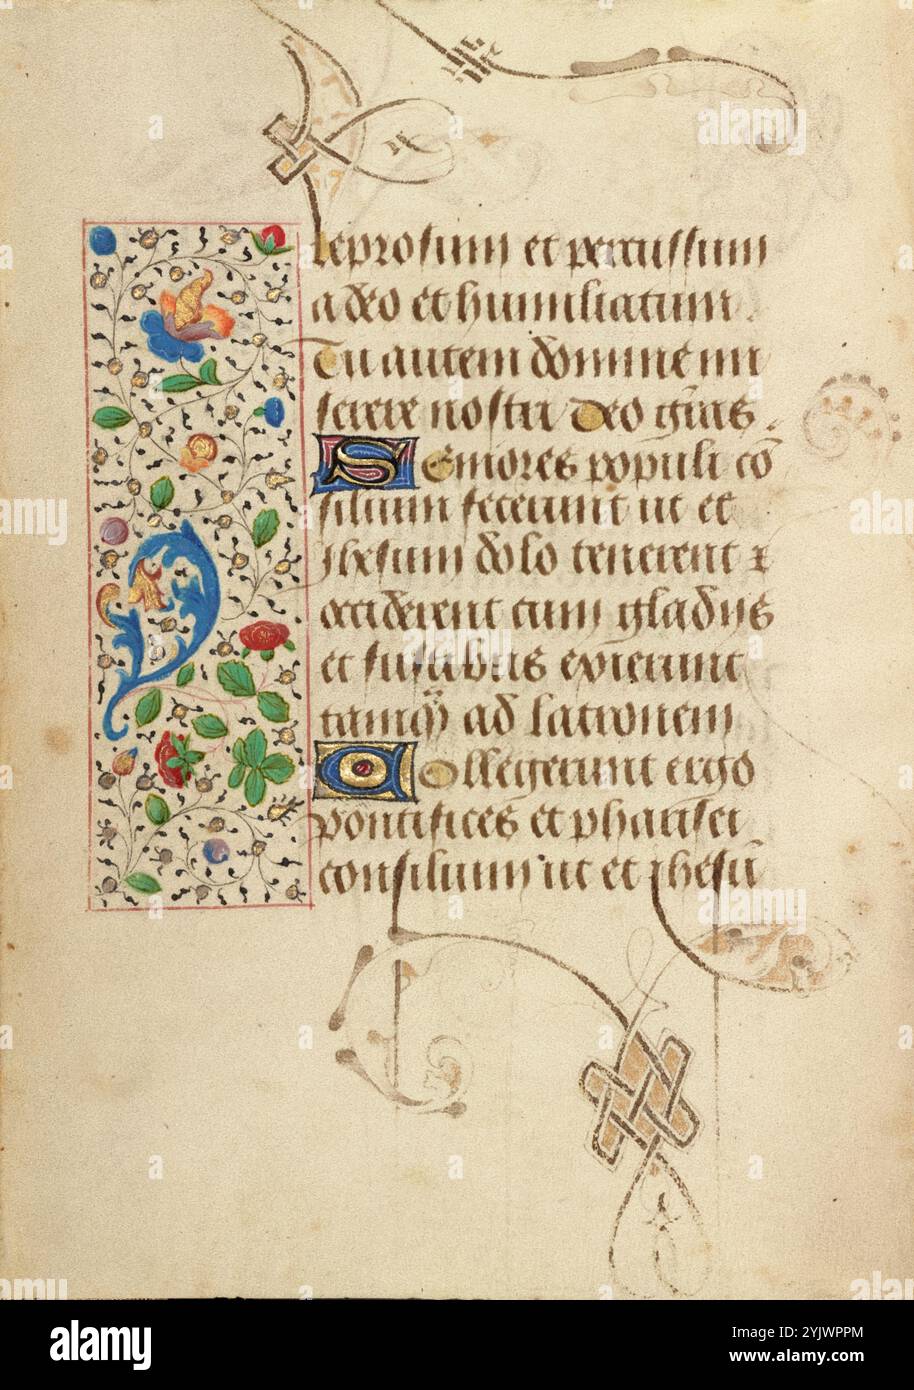 leprosum et percussum
a deo et humiliatum .
Tu autem domine mi
serere nostri Deo gr̄as .
Seniores populi cō
silium fecerunt ut et
Jhesum dolo tenerent ⁊
occiderent cum gladijs
et fustibus exierunt
tamq̄ ad latronem
Collegerunt ergo
pontifices et pharisei
consilium ut et jhesū
alamy
Image ID: 2YJWPPM
www.alamy.com